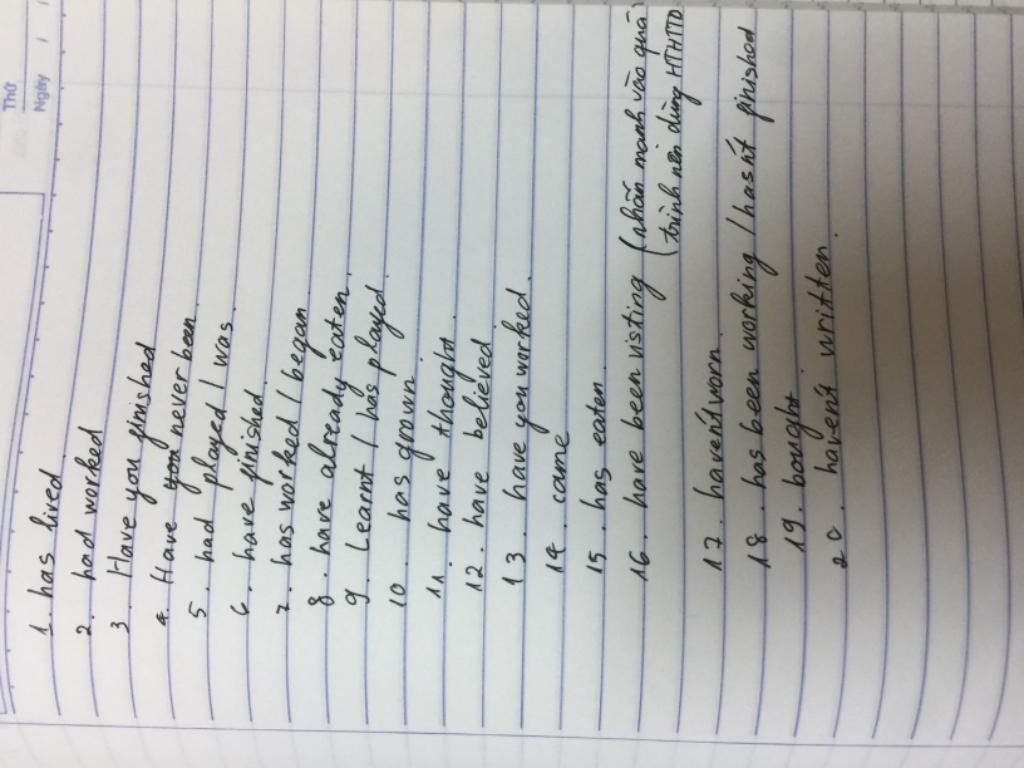 Thứ
Ngày
1. has lived
2. had worked
3. Have you finished
4. Have you never been
5. had played / was.
6. have finished.
7. has worked / began
8. have already eaten.
9. Learnt / has played.
10. has grown
11. have thought.
12. have believed.
13. have you worked.
14. came
15. has eaten.
16. have been visting (nhấn mạnh vào quá
trình nên dùng HTHTTD
17. haven't worn.
18. has been working / hasn't finished
19. bought.
20. haven't written.